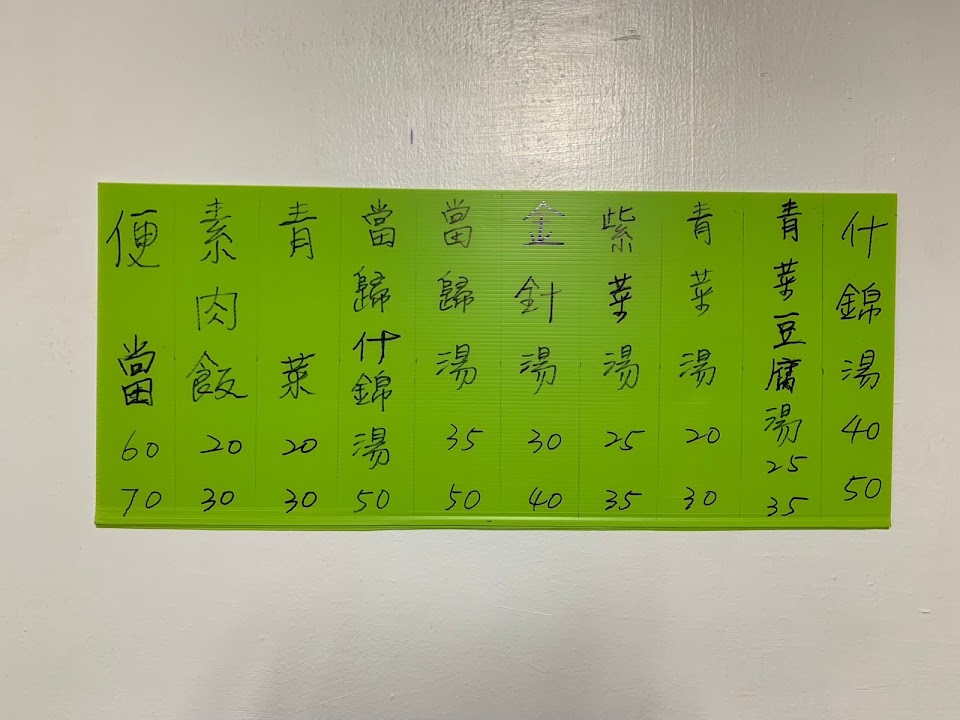 什錦湯 40 50
青菜豆腐湯 25 35
青菜湯 20 30
紫菜湯 25 35
金針湯 30 40
當歸湯 35 50
當歸什錦湯 50
青菜 20 30
素肉飯 20 30
便當 60 70